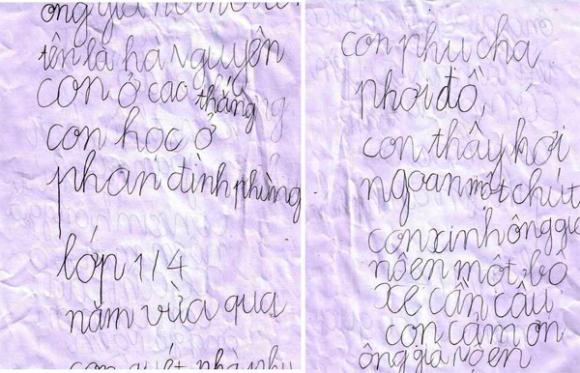 ông già nôen
tên là hà nguyên
con ở cao thắng
con học ở
phan đình phùng
lớp 1/4
năm vừa qua
con quét nhà phụ
con phụ cha
phơi đồ,
con thấy hơi
ngoan một chút
con xinh ông già
nôen một bô
xe cần câu
con cám ơn
ông già nôen